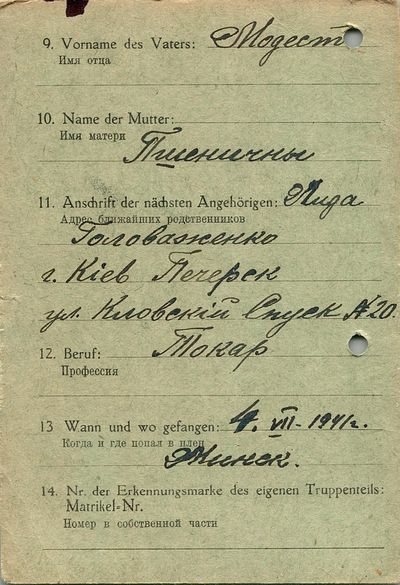 9. Vorname des Vaters: Модест
Имя отца
10. Name der Mutter:
Имя матери
Пшеничны
11. Anschrift der nächsten Angehörigen: Лида
Адрес ближайших родственников
Головаженко
г. Кіев Печерск
ул. Кловскій Спуск № 20.
12. Beruf: Токар
Профессия
13 Wann und wo gefangen: 4. VII - 1941 г.
Когда и где попал в плен
Минск.
14. Nr. der Erkennungsmarke des eigenen Truppenteils:
Matrikel-Nr.
Номер в собственной части